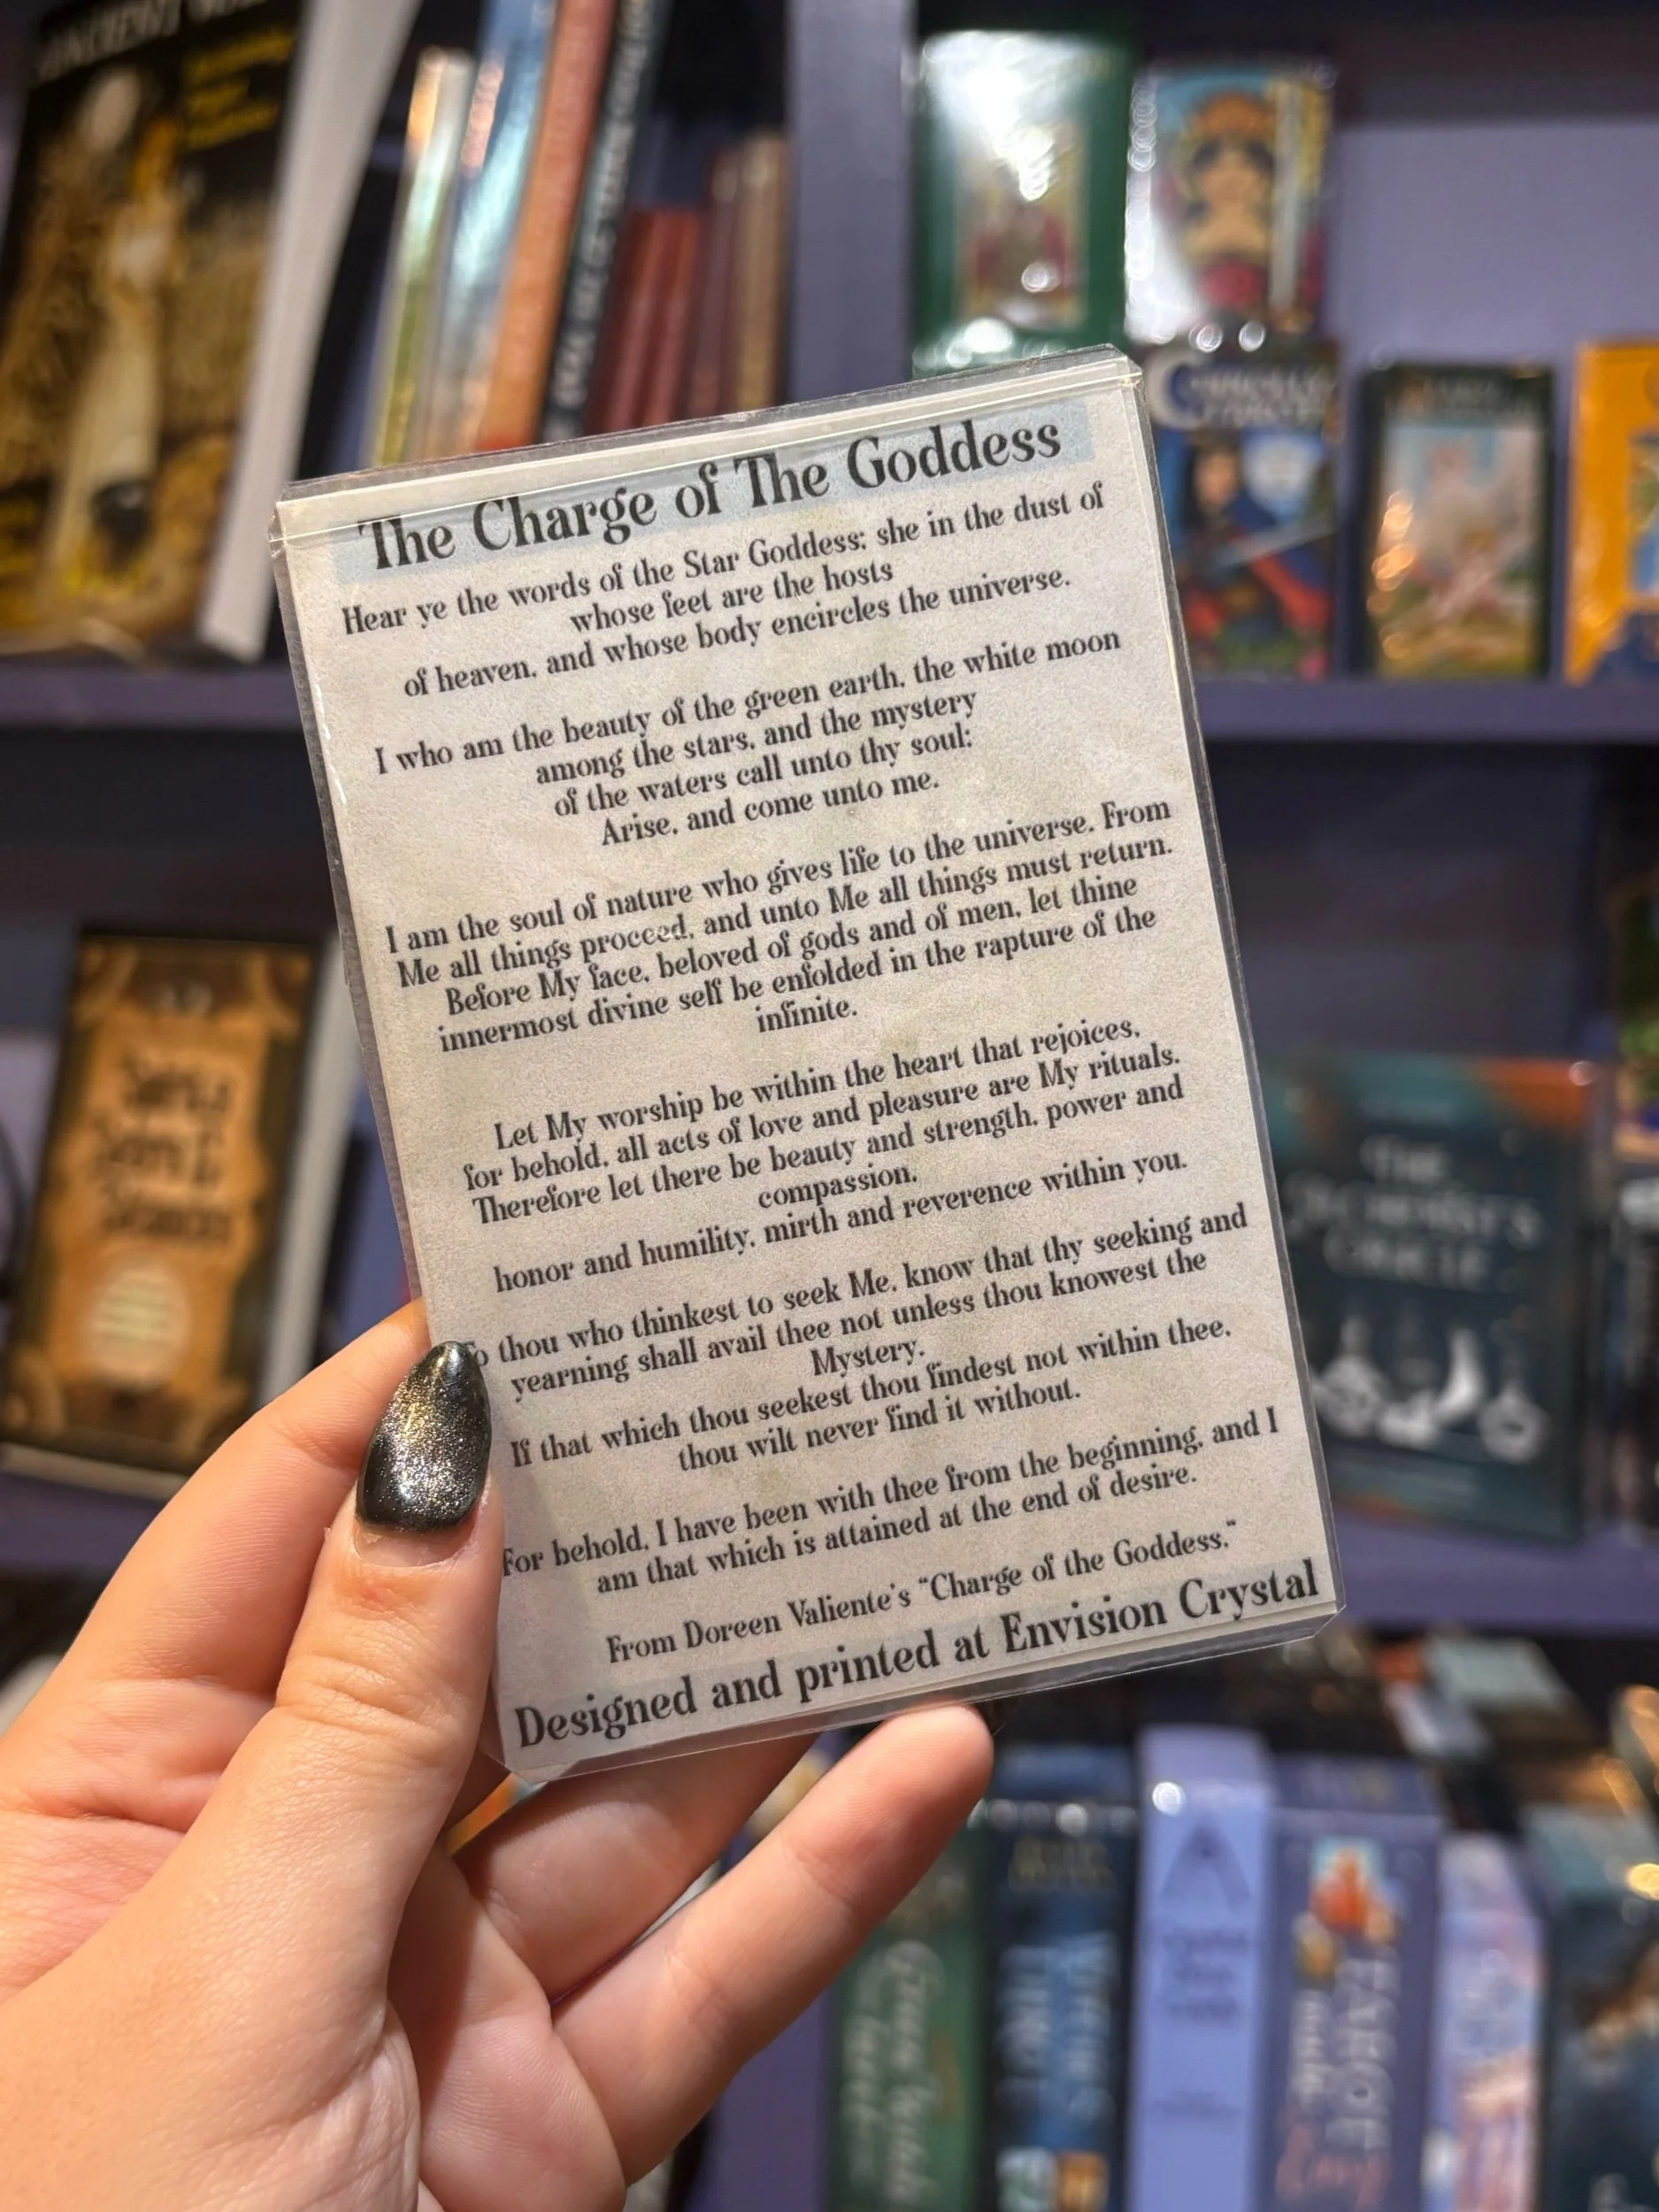 The Charge of The Goddess
Hear ye the words of the Star Goddess; she in the dust of
whose feet are the hosts
of heaven, and whose body encircles the universe.
I who am the beauty of the green earth, the white moon
among the stars, and the mystery
of the waters call unto thy soul;
Arise, and come unto me.
I am the soul of nature who gives life to the universe. From
Me all things proceed, and unto Me all things must return.
Before My face, beloved of gods and of men, let thine
innermost divine self be enfolded in the rapture of the
infinite.
Let My worship be within the heart that rejoices,
for behold, all acts of love and pleasure are My rituals.
Therefore let there be beauty and strength, power and
compassion,
honor and humility, mirth and reverence within you.
To thou who thinkest to seek Me, know that thy seeking and
yearning shall avail thee not unless thou knowest the
Mystery.
If that which thou seekest thou findest not within thee,
thou wilt never find it without.
For behold, I have been with thee from the beginning, and I
am that which is attained at the end of desire.
From Doreen Valiente's "Charge of the Goddess,"
Designed and printed at Envision Crystal
THE
ORACLE
TAROT